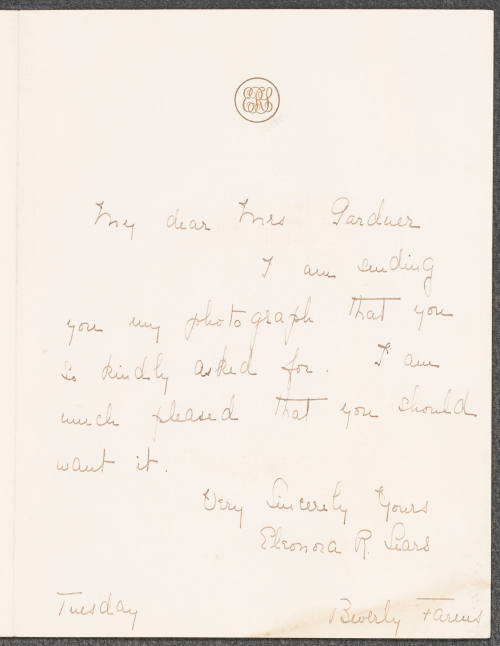 ERS
My dear Mrs Gardner
I am sending
you my photograph that you
so kindly asked for. I am
much pleased that you should
want it.
Very Sincerely Yours
Eleonora R. Sears
Tuesday
Beverly Farms